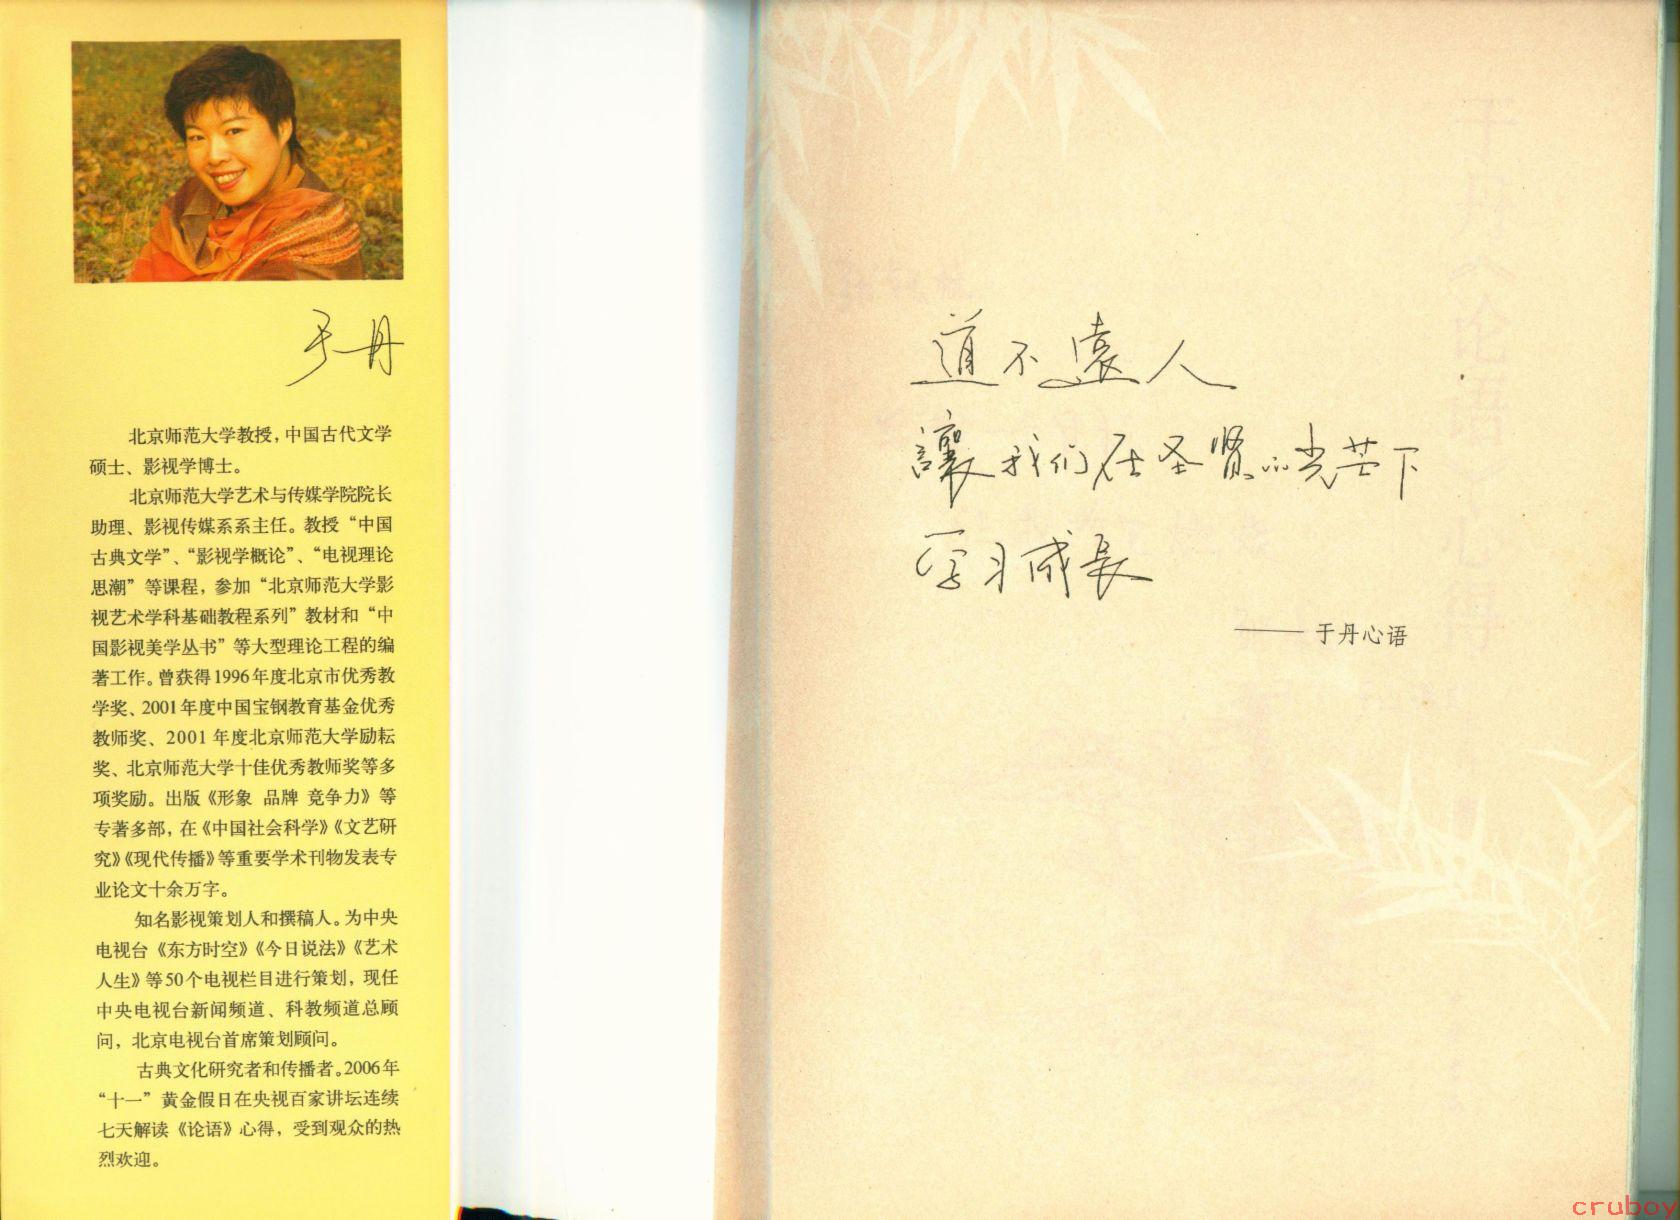 于丹
北京师范大学教授，中国古代文学
硕士、影视学博士。
北京师范大学艺术与传媒学院院长
助理、影视传媒系系主任。教授“中国
古典文学”、“影视学概论”、“电视理论
思潮”等课程，参加“北京师范大学影
视艺术学科基础教程系列”教材和“中
国影视美学丛书”等大型理论工程的编
著工作。曾获得1996年度北京市优秀教
学奖、2001年度中国宝钢教育基金优秀
教师奖、2001年度北京师范大学励耘
奖、北京师范大学十佳优秀教师奖等多
项奖励。出版《形象 品牌 竞争力》等
专著多部，在《中国社会科学》《文艺研
究》《现代传播》等重要学术刊物发表专
业论文十余万字。
知名影视策划人和撰稿人。为中央
电视台《东方时空》《今日说法》《艺术
人生》等50个电视栏目进行策划，现任
中央电视台新闻频道、科教频道总顾
问，北京电视台首席策划顾问。
古典文化研究者和传播者。2006年
“十一”黄金假日在央视百家讲坛连续
七天解读《论语》心得，受到观众的热
烈欢迎。
道不遠人
讓我们在圣贤的光芒下
学习成長
——于丹心语
于丹《论语》心得
cruboy